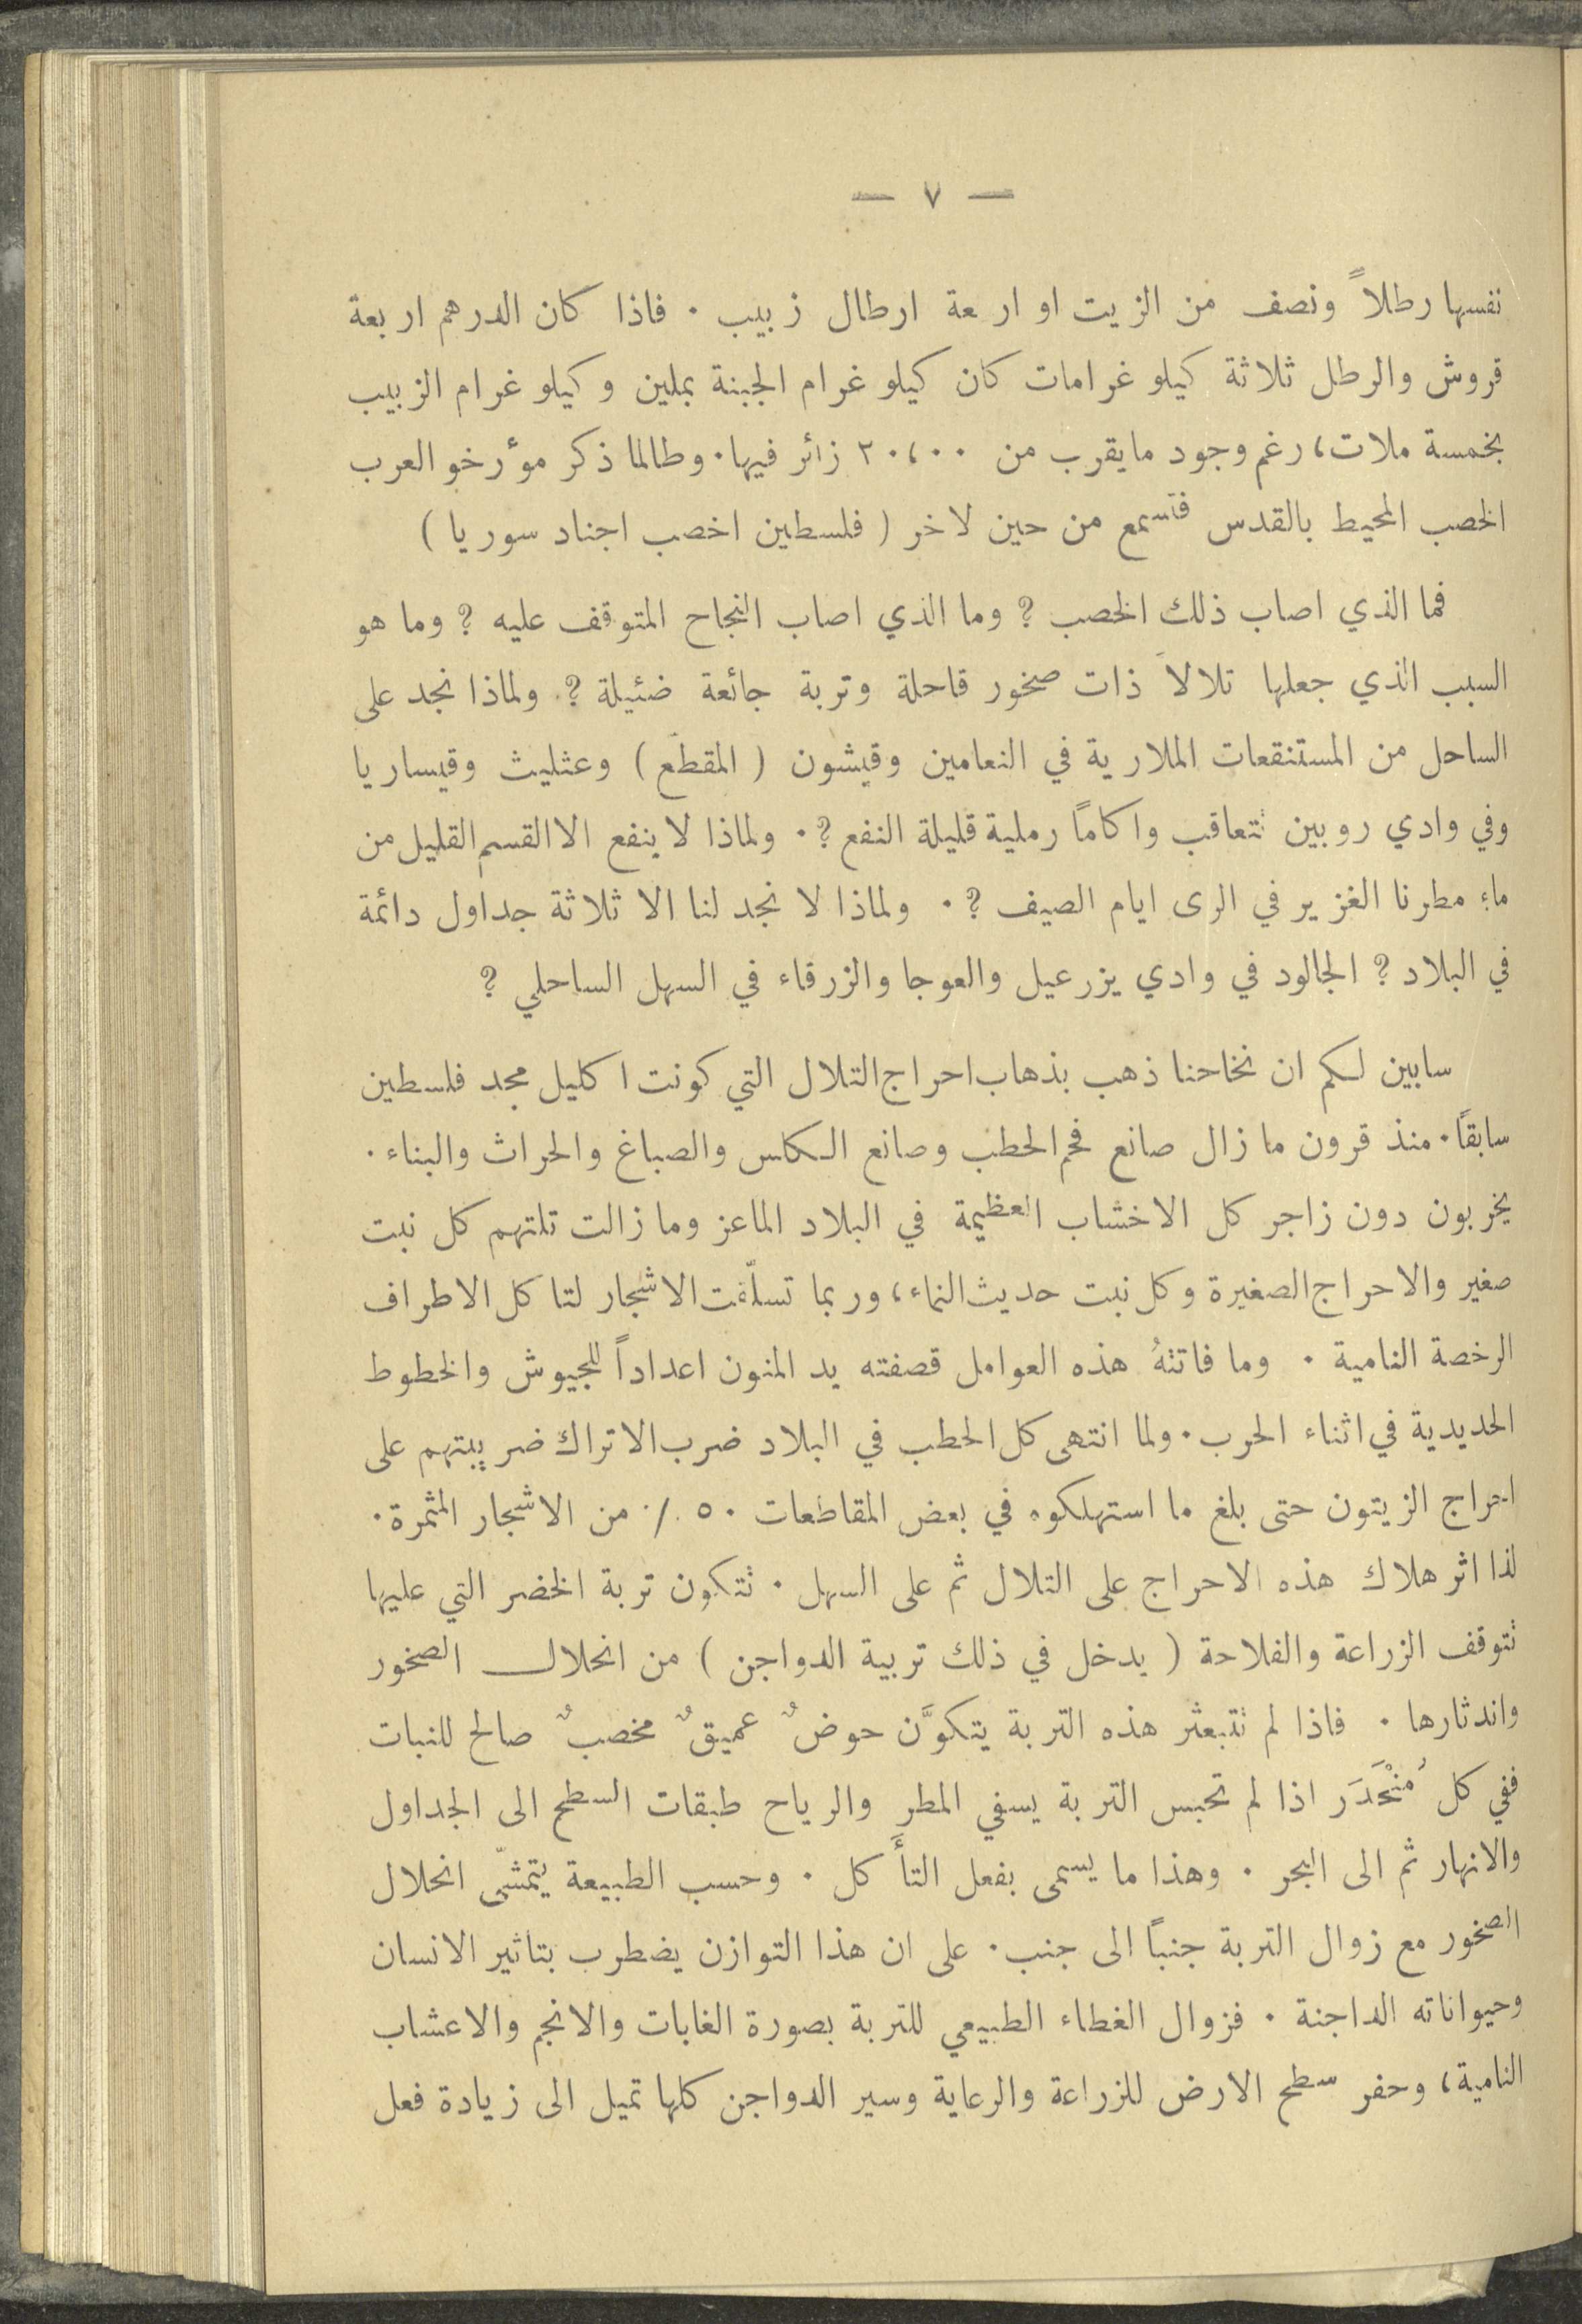 — ٧ —
نفسها رطلاً ونصف من الزيت او ار عة ارطال زبيب . فاذا كان الدرهم اربعة
قروش والرطل ثلاثة كيلو غرامات كان كيلو غرام الجبنة بملين وكيلو غرام الزبيب
بخمسة ملات، رغم وجود مايقرب من ٢٠،٠٠ زائر فيها. وطالما ذكر مؤرخو العرب
الخصب المحيط بالقدس فتسمع من حين لاخر ( فلسطين اخصب اجناد سوريا )
فما الذي اصاب ذلك الخصب ؟ وما الذي اصاب النجاح المتوقف عليه ؟ وما هو
السبب الذي جعلها تلالاً ذات صخور قاحلة وتربة جائعة ضئيلة ؟. ولماذا نجد على
الساحل من المستنقعات الملارية في النعامين وقيشون ( المقطّع ) وعثليث وقيساريا
وفي وادي روبين تتعاقب واكاماً رملية قليلة النفع ؟. ولماذا لا ينفع الا القسم القليل من
ماء مطرنا الغزير في الرى ايام الصيف ؟. ولماذا لا نجد لنا الا ثلاثة جداول دائمة
في البلاد ؟ الجالود في وادي يزرعيل والعوجا والزرقاء في السهل الساحلي ؟
سابين لكم ان نخاحنا ذهب بذهاب احراج التلال التي كونت اكليل مجد فلسطين
سابقاً. منذ قرون ما زال صانع فحم الحطب وصانع الكلس والصباغ والحراث والبناء .
يخربون دون زاجر كل الاخشاب العظيمة في البلاد الماعز وما زالت تلتهم كل نبت
صغير والاحراج الصغيرة وكل نبت حديث النماء، وربما تسلّقت الاشجار لتا كل الاطراف
الرخصة النامية . وما فاتتهُ هذه العوامل قصفته يد المنون اعداداً للجيوش والخطوط
الحديدية في اثناء الحرب. ولما انتهى كل الحطب في البلاد ضرب الاتراك ضريبتهم على
احراج الزيتون حتى بلغ ما استهلكوه في بعض المقاطعات ٥٠ ٪ من الاشجار المثمرة.
لذا اثر هلاك هذه الاحراج على التلال ثم على السهل . تتكون تربة الخضر التي عليها
تتوقف الزراعة والفلاحة ( يدخل في ذلك تربية الدواجن ) من انحلال الصخور
واندثارها . فاذا لم تتبعثر هذه التربة يتكوَّن حوضٌ عميقٌ مخصبٌ صالح للنبات
ففي كل مُنْحَدَر اذا لم تحبس التربة يسفي المطر والرياح طبقات السطح الى الجداول
والانهار ثم الى البحر . وهذا ما يسمى بفعل التأَكل . وحسب الطبيعة يتمشّى انحلال
الصخور مع زوال التربة جنباً الى جنب. على ان هذا التوازن يضطرب بتاثير الانسان
وحيواناته الداجنة . فزوال الغطاء الطبيعي للتربة بصورة الغابات والانجم والاعشاب
النامية، وحفر سطح الارض للزراعة والرعاية وسير الدواجن كلها تميل الى زيادة فعل